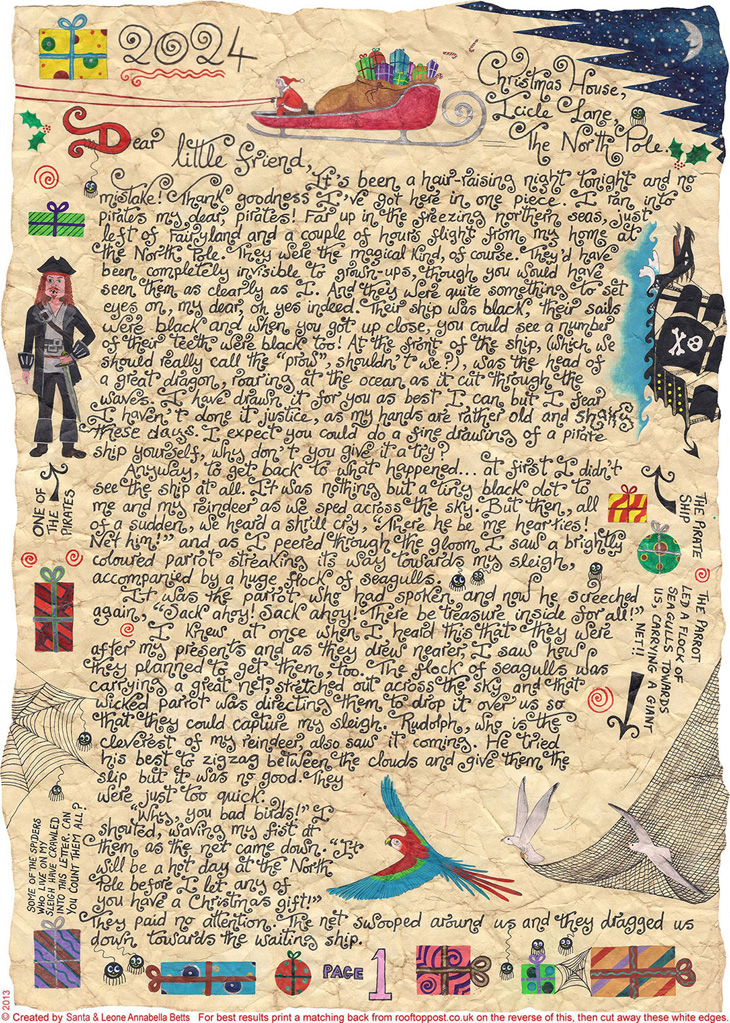 2024
Christmas House,
Icicle Lane,
The North Pole.
Dear little friend,
It's been a hair-raising night tonight and no
mistake! Thank goodness I've got here in one piece. I ran into
pirates my dear, pirates! Far up in the freezing northern seas, just
left of Fairyland and a couple of hours flight from my home at
the North Pole. They were the magical kind, of course. They'd have
been completely invisible to grown-ups, though you would have
seen them as clearly as I. And they were quite something to set
eyes on, my dear, oh yes indeed. Their ship was black, their sails
were black and when you got up close, you could see a number
of their teeth were black too! At the front of the ship, (which we
should really call the "prow", shouldn't we?), was the head of
a great dragon, roaring at the ocean as it cut through the
waves. I have drawn it for you as best I can but I fear
I haven't done it justice, as my hands are rather old and shaky
these days. I expect you could do a fine drawing of a pirate
ship yourself, why don't you give it a try?
Anyway, to get back to what happened... at first I didn't
see the ship at all. It was nothing but a tiny black dot to
me and my reindeer as we sped across the sky. But then, all
of a sudden, we heard a shrill cry, "There he be me hearties!
Net him!" and as I peered through the gloom I saw a brightly
coloured parrot streaking its way towards my sleigh,
accompanied by a huge flock of seagulls.
It was the parrot who had spoken and now he screeched
again, "Sack ahoy! Sack ahoy! There be treasure inside for all!"
I knew at once when I heard this that they were
after my presents and as they drew nearer, I saw how
they planned to get them, too. The flock of seagulls was
carrying a great net, stretched out across the sky and that
wicked parrot was directing them to drop it over us so
that they could capture my sleigh. Rudolph, who is the
cleverest of my reindeer, also saw it coming. He tried
his best to zigzag between the clouds and give them the
slip but it was no good. They
were just too quick.
"Why, you bad birds!" I
shouted, waving my fist at
them as the net came down. "It
will be a hot day at the North
Pole before I let any of
you have a Christmas gift!"
They paid no attention. The net swooped around us and they dragged us
down towards the waiting ship.
ONE OF
THE
PIRATES
THE PIRATE
SHIP
THE PARROT
LED A FLOCK OF
SEAGULLS TOWARDS
US, CARRYING A GIANT
NET!!
SOME OF THE SPIDERS
WHO LIVE ON MY
SLEIGH HAVE CRAWLED
INTO THIS LETTER. CAN
YOU COUNT THEM ALL?
PAGE 1
© 2013
© Created by Santa & Leone Annabella Betts For best results print a matching back from rooftoppost.co.uk on the reverse of this, then cut away these white edges.